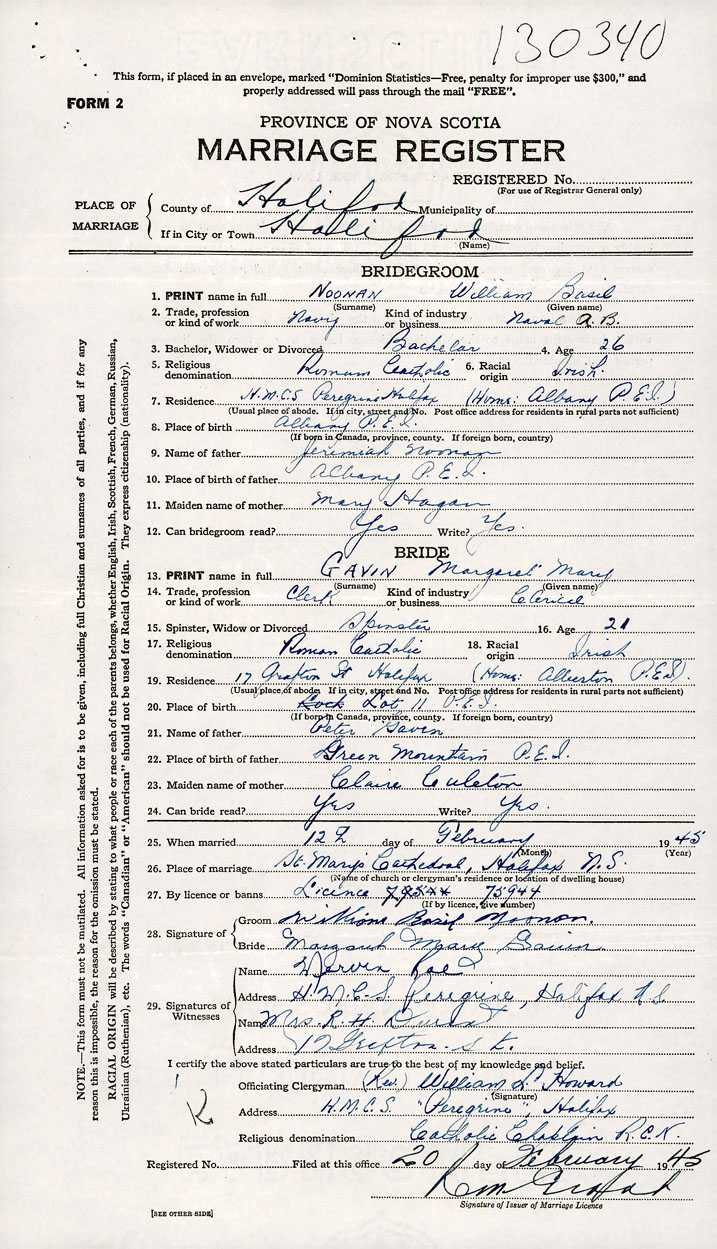 130340
This form, if placed in an envelope, marked "Dominion Statistics—Free, penalty for improper use $300," and
properly addressed will pass through the mail "FREE".
FORM 2
PROVINCE OF NOVA SCOTIA
MARRIAGE REGISTER
REGISTERED No.
(For use of Registrar General only)
PLACE OF MARRIAGE
County of Halifax Municipality of
If in City or Town Halifax
(Name)
BRIDEGROOM
1. PRINT name in full NOONAN William Basil
(Surname) (Given name)
2. Trade, profession or kind of work Navy Kind of industry or business Naval A.B.
3. Bachelor, Widower or Divorced Bachelor 4. Age 26
5. Religious denomination Roman Catholic 6. Racial origin Irish.
7. Residence H.M.C.S Peregrine Halifax (Home: Albany P.E.I.)
(Usual place of abode. If in city, street and No. Post office address for residents in rural parts not sufficient)
8. Place of birth Albany P.E.I.
(If born in Canada, province, county. If foreign born, country)
9. Name of father Jeremiah Noonan
10. Place of birth of father Albany P.E.I.
11. Maiden name of mother Mary Hogan
12. Can bridegroom read? Yes Write? Yes.
BRIDE
13. PRINT name in full GAVIN Margaret Mary
(Surname) (Given name)
14. Trade, profession or kind of work Clerk Kind of industry or business Clerical
15. Spinster, Widow or Divorced Spinster 16. Age 21
17. Religious denomination Roman Catholic 18. Racial origin Irish
19. Residence 17 Grafton St Halifax (Home: Alberton P.E.I.)
(Usual place of abode If in city, street and No. Post office address for residents in rural parts not sufficient)
20. Place of birth Lot 11 P.E.I.
(If born in Canada, province, county. If foreign born, country)
21. Name of father Peter Gavin
22. Place of birth of father Green Mountain P.E.I.
23. Maiden name of mother Claire
24. Can bride read? Yes Write? Yes.
25. When married 12th day of February 1945
(Month) (Year)
26. Place of marriage St. Mary's Cathedral, Halifax N.S.
(Name of church or clergyman's residence or location of dwelling house)
27. By licence or banns Licence 75944
(If by licence, give number)
28. Signature of
Groom William Basil Noonan.
Bride Margaret Mary Gavin
29. Signatures of Witnesses
Name Rae
Address H.M.C.S Peregrine, Halifax N.S.
Name Mrs. R. H.
Address 17 Grafton St.
I certify the above stated particulars are true to the best of my knowledge and belief.
Officiating Clergyman (Rev.) William L. Howard
(Signature)
Address H.M.C.S. "Peregrine", Halifax
Religious denomination Catholic Chaplain R.C.N.
Registered No. Filed at this office 20 day of February 1945
Signature of Issuer of Marriage Licence
[SEE OTHER SIDE]
NOTE.—This form must not be mutilated. All information asked for is to be given, including full Christian and surnames of all parties, and if for any
reason this is impossible, the reason for the omission must be stated.
RACIAL ORIGIN will be described by stating to what people or race each of the parents belongs, whether English, Irish, Scottish, French, German, Russian,
Ukrainian (Ruthenian), etc. The words "Canadian" or "American" should not be used for Racial Origin. They express citizenship (nationality).